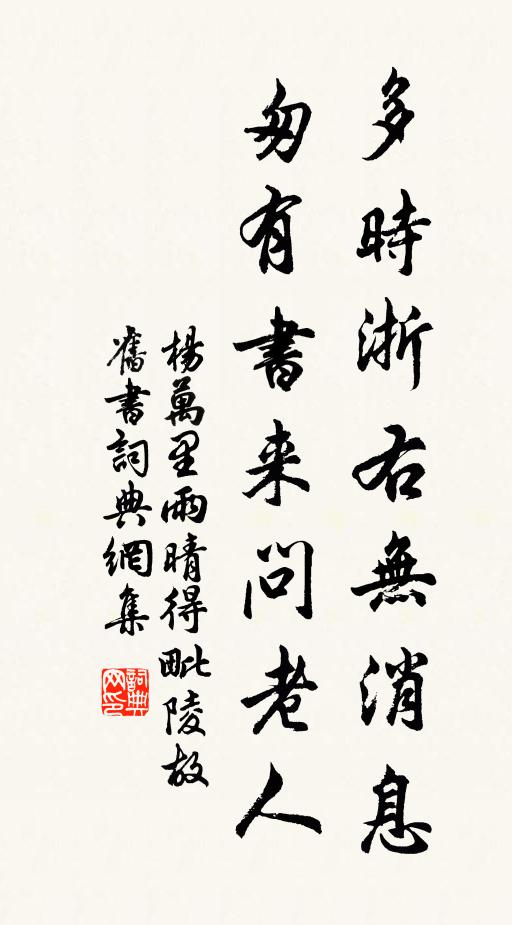 多時浙右無消息
匆有書来問老人
楊萬里雨晴得毗陵故
舊書詞典網集
詞典网印